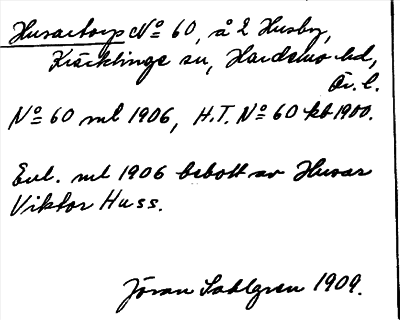 Husartorp No 60, å 2 Husby,
Kräcklinge sn, Hardemo hd,
Ör. l.
No 60 ml 1906, H.T. No 60 kb 1900.
Enl. ml 1906 bebott av Husar
Viktor Huss.
Jöran Sahlgren 1909.